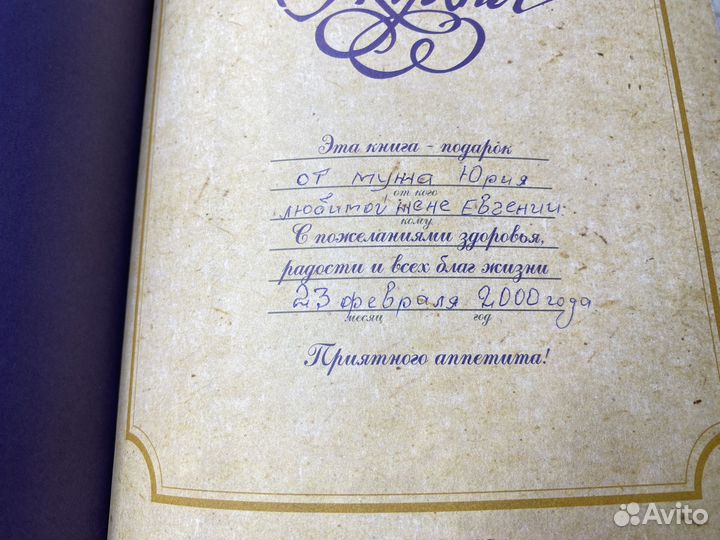 Эта книга - подарок
от мужа Юрия
от кого
любимой жене Евгении.
кому
С пожеланиями здоровья,
радости и всех благ жизни
23 февраля 2000 года
месяц год
Приятного аппетита!
Avito